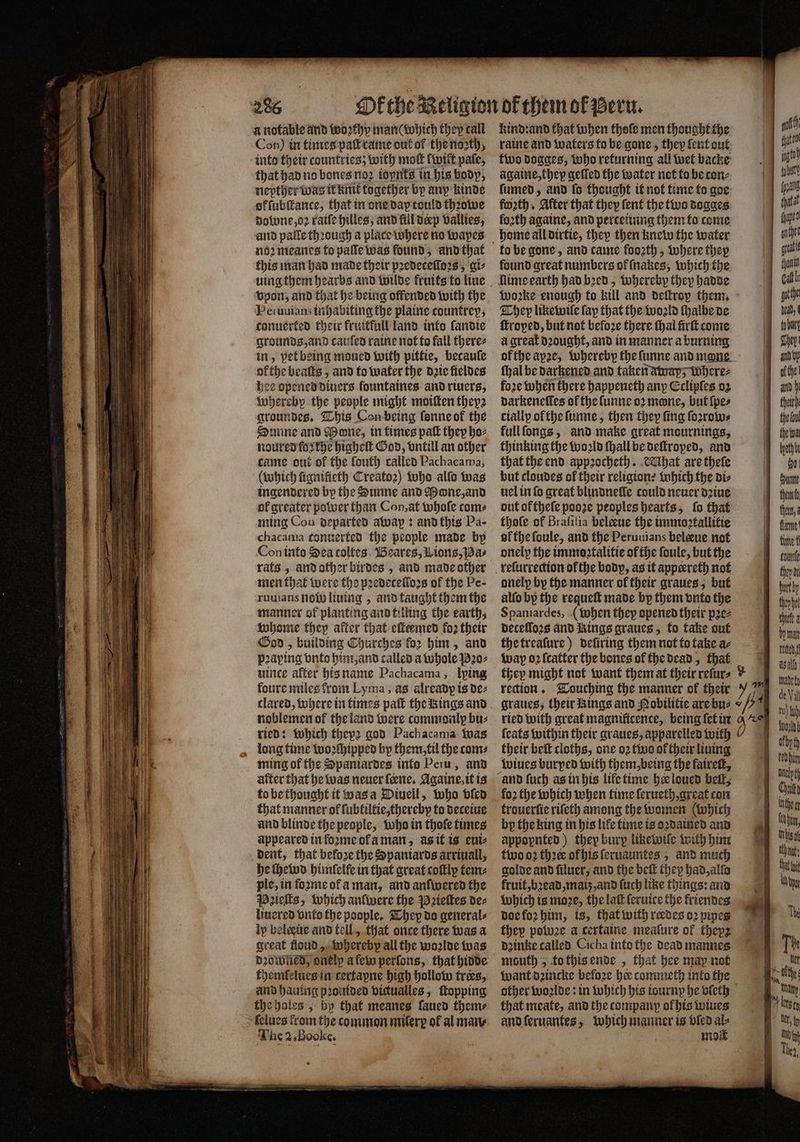 286 Of the Religion of them of Peru.
a notable and worthy man (which they call
Con) in times past came out of the north,
into their countries, with most swift pase,
that had no bones nor ioynts in his body,
neyther was it knit together by any kinde
of substance, that in one day could throwe
downe, or raise hilles, and fill deep vallies,
and passe through a place where no wayes
nor meanes to passe was found, and that
this man had made their predecessors, gi-
uing them hearbs and wilde fruits to liue
vpon, and that he being offended with the
Peruuians inhabiting the plaine countrey,
conuerted their fruitfull land into sandie
grounds, and caused raine not to fall there-
in, yet being moued with pittie, because
of the beasts, and to water the drie fieldes
hee opened diuers fountaines and riuers,
whereby the people might moisten theyr
groundes. This Con being sonne of the
Sunne and Moone, in times past they ho-
noured for the highest God, vntill an other
came out of the south called Pachacama,
(which signifieth Creator) who also was
ingendered by the Sunne and Moone, and
of greater power than Con, at whose com-
ming Cou departed away : and this Pa-
chacama conuerted the people made by
Con into Sea coltes, Beares, Lions, Pa-
rats, and other birdes, and made other
men that were the predecessors of the Pe-
ruuians now liuing, and taught them the
manner of planting and tilling the earth,
whome they after that esteemed for their
God, building Churches for him, and
praying vnto him, and called a whole Pro-
uince after his name Pachacama, lying
foure miles from Lyma, as already is de-
clared, where in times past the Kings and
noblemen of the land were commonly bu-
ried: which theyr god Pachacama was
long time worshipped by them, til the com-
ming of the Spaniardes into Peru, and
after that he was neuer seene. Againe, it is
to be thought it was a Diuell, who vsed
that manner of subtiltie, thereby to deceiue
and blinde the people, who in those times
appeared in forme of a man, as it is eui-
dent, that before the Spaniards arriuall,
he shewd himselfe in that great costly tem-
ple, in forme of a man, and answered the
Priests, which answere the Priestes de-
liuered vnto the poople. They do general-
ly beleeue and tell, that once there was a
great floud, whereby all the worlde was
drowned, onely a few persons, that hidde
themselues in certayne high hollow trees,
and hauing prouided victualles, stopping
the holes, by that meanes saued them-
selues from the common misery of al man-
The 2. Booke.
kind: and that when these men thought the
raine and waters to be gone, they sent out
two dogges, who returning all wet backe
againe, they gessed the water not to be con-
sumed, and so thought it not time to goe
forth. After that they sent the two dogges
forth againe, and perceiuing them to come
home all dirtie, they then knew the water
to be gone, and came foorth, where they
found great numbers of snakes, which the
slime earth had bred, whereby they hadde
worke enough to kill and destroy them.
They likewise say that the world shalbe de
stroyed, but not before there shal first come
a great drought, and in manner a burning
of the ayre, whereby the sunne and moone
shal be darkened and taken away, where-
fore when there happeneth any Eclipses or
darkenesses of the sunne or moone, but spe-
cially of the sunne, then they sing sorrow-
full songs, and make great mournings,
thinking the world shall be destroyed, and
that the end approcheth. What are these
but cloudes of their religion? which the di-
uel in so great blindnesse could neuer driue
out of these poore peoples hearts, so that
those of Brasilia beleeue the immortallitie
of the soule, and the Peruuians beleeue not
onely the immortalitie of the soule, but the
resurrection of the body, as it appeereth not
onely by the manner of their graues, but
also by the request made by them vnto the
Spaniardes, (when they opened their pre-
decessors and Kings graues, to take out
the treasure) desiring them not to take a-
way or scatter the bones of the dead, that
they might not want them at their resur-
rection. Touching the manner of their
graues, their Kings and Nobilitie are bu-
ried with great magnificence, being set in
seats within their graues, apparelled with
their best cloths, one or two of their liuing
wiues buryed with them, being the fairest,
and such as in his life time hee loued best,
for the which when time serueth, great con
trouersie riseth among the women (which
by the king in his life time is ordained and
appoynted) they bury likewise with him
two or three of his seruauntes, and much
golde and siluer, and the best they had, also
fruit, bread, maiz, and such like things: and
which is more, the last seruice the friendes
doe for him, is, that with reedes or pipes
they powre a certaine measure of theyr
drinke called Cicha into the dead mannes
mouth, to this ende, that hee may not
want drincke before hee commeth into the
other worlde: in which his iourny he vseth
that meate, and the company of his wiues
and seruantes, which manner is vsed al-
most